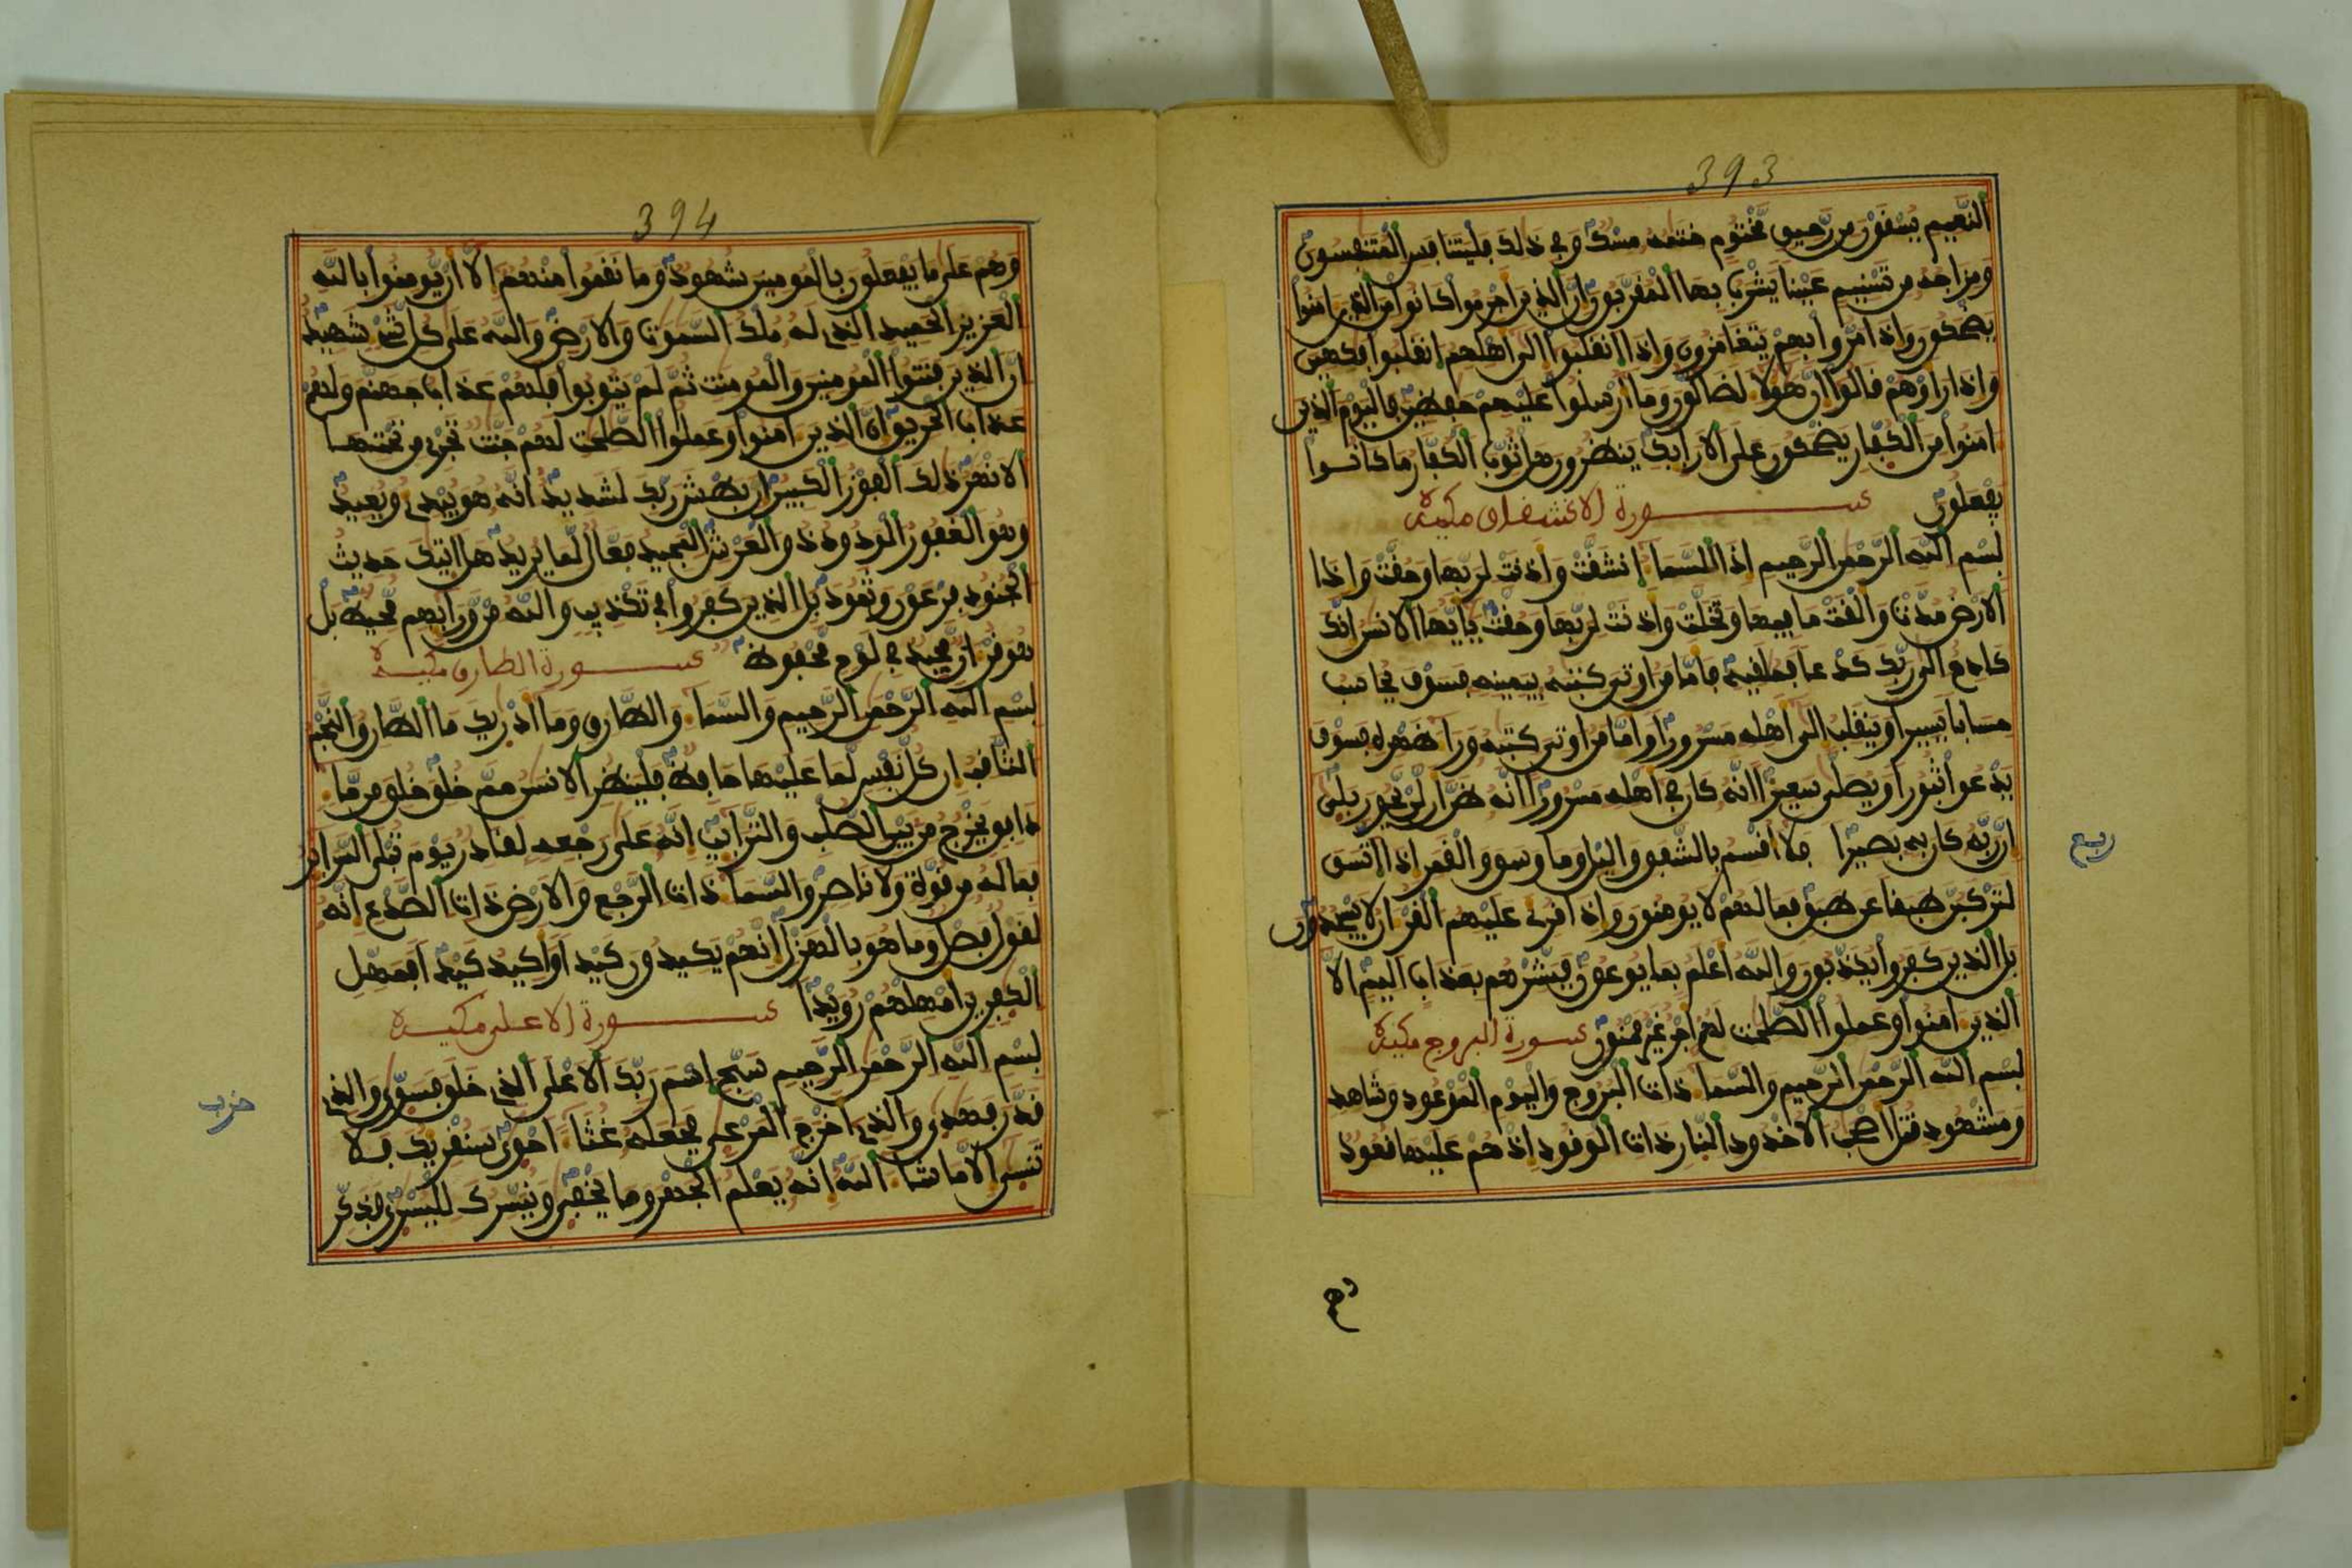 393
النعيم يسقون من رحيق مختوم ختمه مسك وفي ذلك فليتنافس المتنفسون
ومزاجه من تسنيم عينا يشرب بها المقربون ان الذين اجرموا كانوا من الذين امنوا
يضحكون واذا مروا بهم يتغامزون واذا انقلبوا الى اهلهم انقلبوا فكهين
واذا راوهم قالوا ان هولا لضالون وما ارسلوا عليهم حفظين فاليوم الذين
امنوا من الكفار يضحكون على الارايك ينظرون هل ثوب الكفار ما كانوا
يفعلون سورة الانشقاق مكية
بسم الله الرحمن الرحيم اذا السما انشقت واذنت لربها وحقت واذا
الارض مدت والقت ما فيها وتخلت واذنت لربها وحقت يايها الانسن انك
كادح الى ربك كدحا فملقيه فاما من اوتي كتبه بيمينه فسوف يحاسب
حسابا يسيرا وينقلب الى اهله مسرورا واما من اوتي كتبه ورا ظهره فسوف
يدعوا ثبورا ويصلى سعيرا انه كان في اهله مسرورا انه ظن ان لن يحور بلى
ان ربه كان به بصيرا فلا اقسم بالشفق واليل وما وسق والقمر اذا اتسق
ربع
لتركبن طبقا عن طبق فما لهم لا يومنون واذا قري عليهم القران لا يسجدون
بل الذين كفروا يكذبون والله اعلم بما يوعون فبشرهم بعذاب اليم الا
الذين امنوا وعملوا الصلحت لهم اجر غير ممنون سورة البروج مكية
بسم الله الرحمن الرحيم والسما ذات البروج واليوم الموعود وشاهد
ومشهود قتل اصحب الاخدود النار ذات الوقود اذ هم عليها قعود
وهم
394
وهم على ما يفعلون بالمومنين شهود وما نقموا منهم الا ان يومنوا بالله
العزيز الحميد الذي له ملك السموت والارض والله على كل شي شهيد
ان الذين فتنوا المومنين والمومنت ثم لم يتوبوا فلهم عذاب جهنم ولهم
عذاب الحريق ان الذين امنوا وعملوا الصلحت لهم جنت تجري من تحتها
الانهر ذلك الفوز الكبير ان بطش ربك لشديد انه هو يبدي ويعيد
وهو الغفور الودود ذو العرش المجيد فعال لما يريد هل اتيك حديث
الجنود فرعون وثمود بل الذين كفروا في تكذيب والله من ورايهم محيط بل
هو قران مجيد في لوح محفوظ سورة الطارق مكية
بسم الله الرحمن الرحيم والسما والطارق وما ادريك ما الطارق النجم
الثاقب ان كل نفس لما عليها حافظ فلينظر الانسن مم خلق خلق من ما
دافق يخرج من بين الصلب والترايب انه على رجعه لقادر يوم تبلى السراير
فما له من قوة ولا ناصر والسما ذات الرجع والارض ذات الصدع انه
لقول فصل وما هو بالهزل انهم يكيدون كيدا واكيد كيدا فمهل
الكفرين امهلهم رويدا سورة الاعلى مكية
بسم الله الرحمن الرحيم سبح اسم ربك الاعلى الذي خلق فسوى والذي
حزب
قدر فهدى والذي اخرج المرعى فجعله غثا احوى سنقريك فلا
تنسى الا ما شا الله انه يعلم الجهر وما يخفى ونيسرك لليسرى فذكر